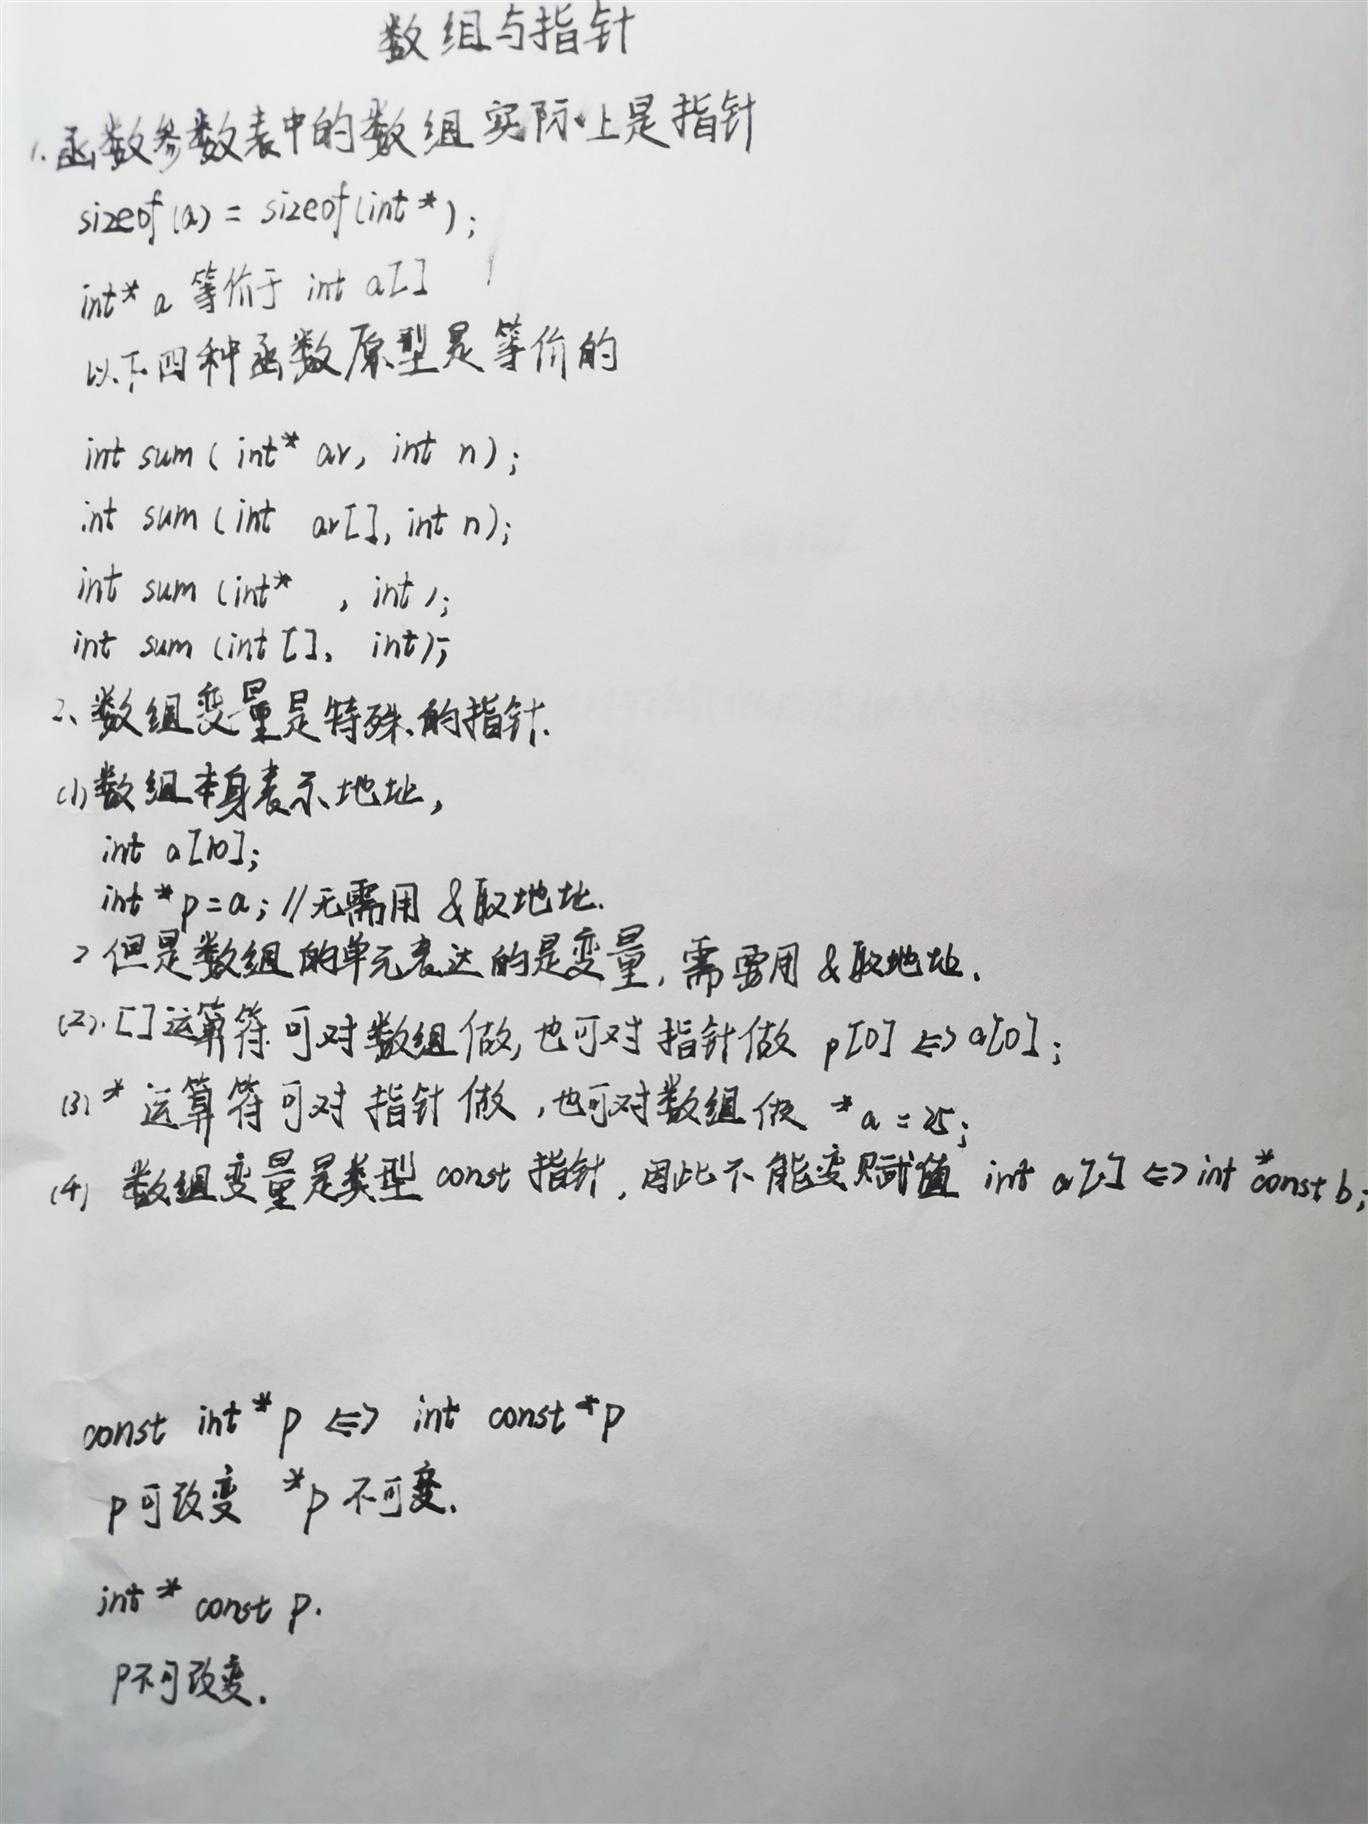 数组与指针
1.函数参数表中的数组实际上是指针
sizeof(a) = sizeof(int*);
int* a 等价于 int a[]
以下四种函数原型是等价的
int sum( int* ar, int n);
int sum(int ar[], int n);
int sum (int* , int);
int sum (int [], int);
2、数组变量是特殊的指针.
(1)数组本身表示地址,
int a[10];
int *p=a; //无需用 &取地址.
2 但是数组的单元表达的是变量, 需要用 &取地址.
(2).[]运算符可对数组做,也可对指针做 p[0] <=> a[0];
(3)* 运算符可对指针做,也可对数组做 *a = 25;
(4) 数组变量是类型 const 指针, 因此不能变赋值 int a[] <=> int *const b;
const int *p <=> int const *p
p可改变 *p不可变.
int * const p.
p不可改变.